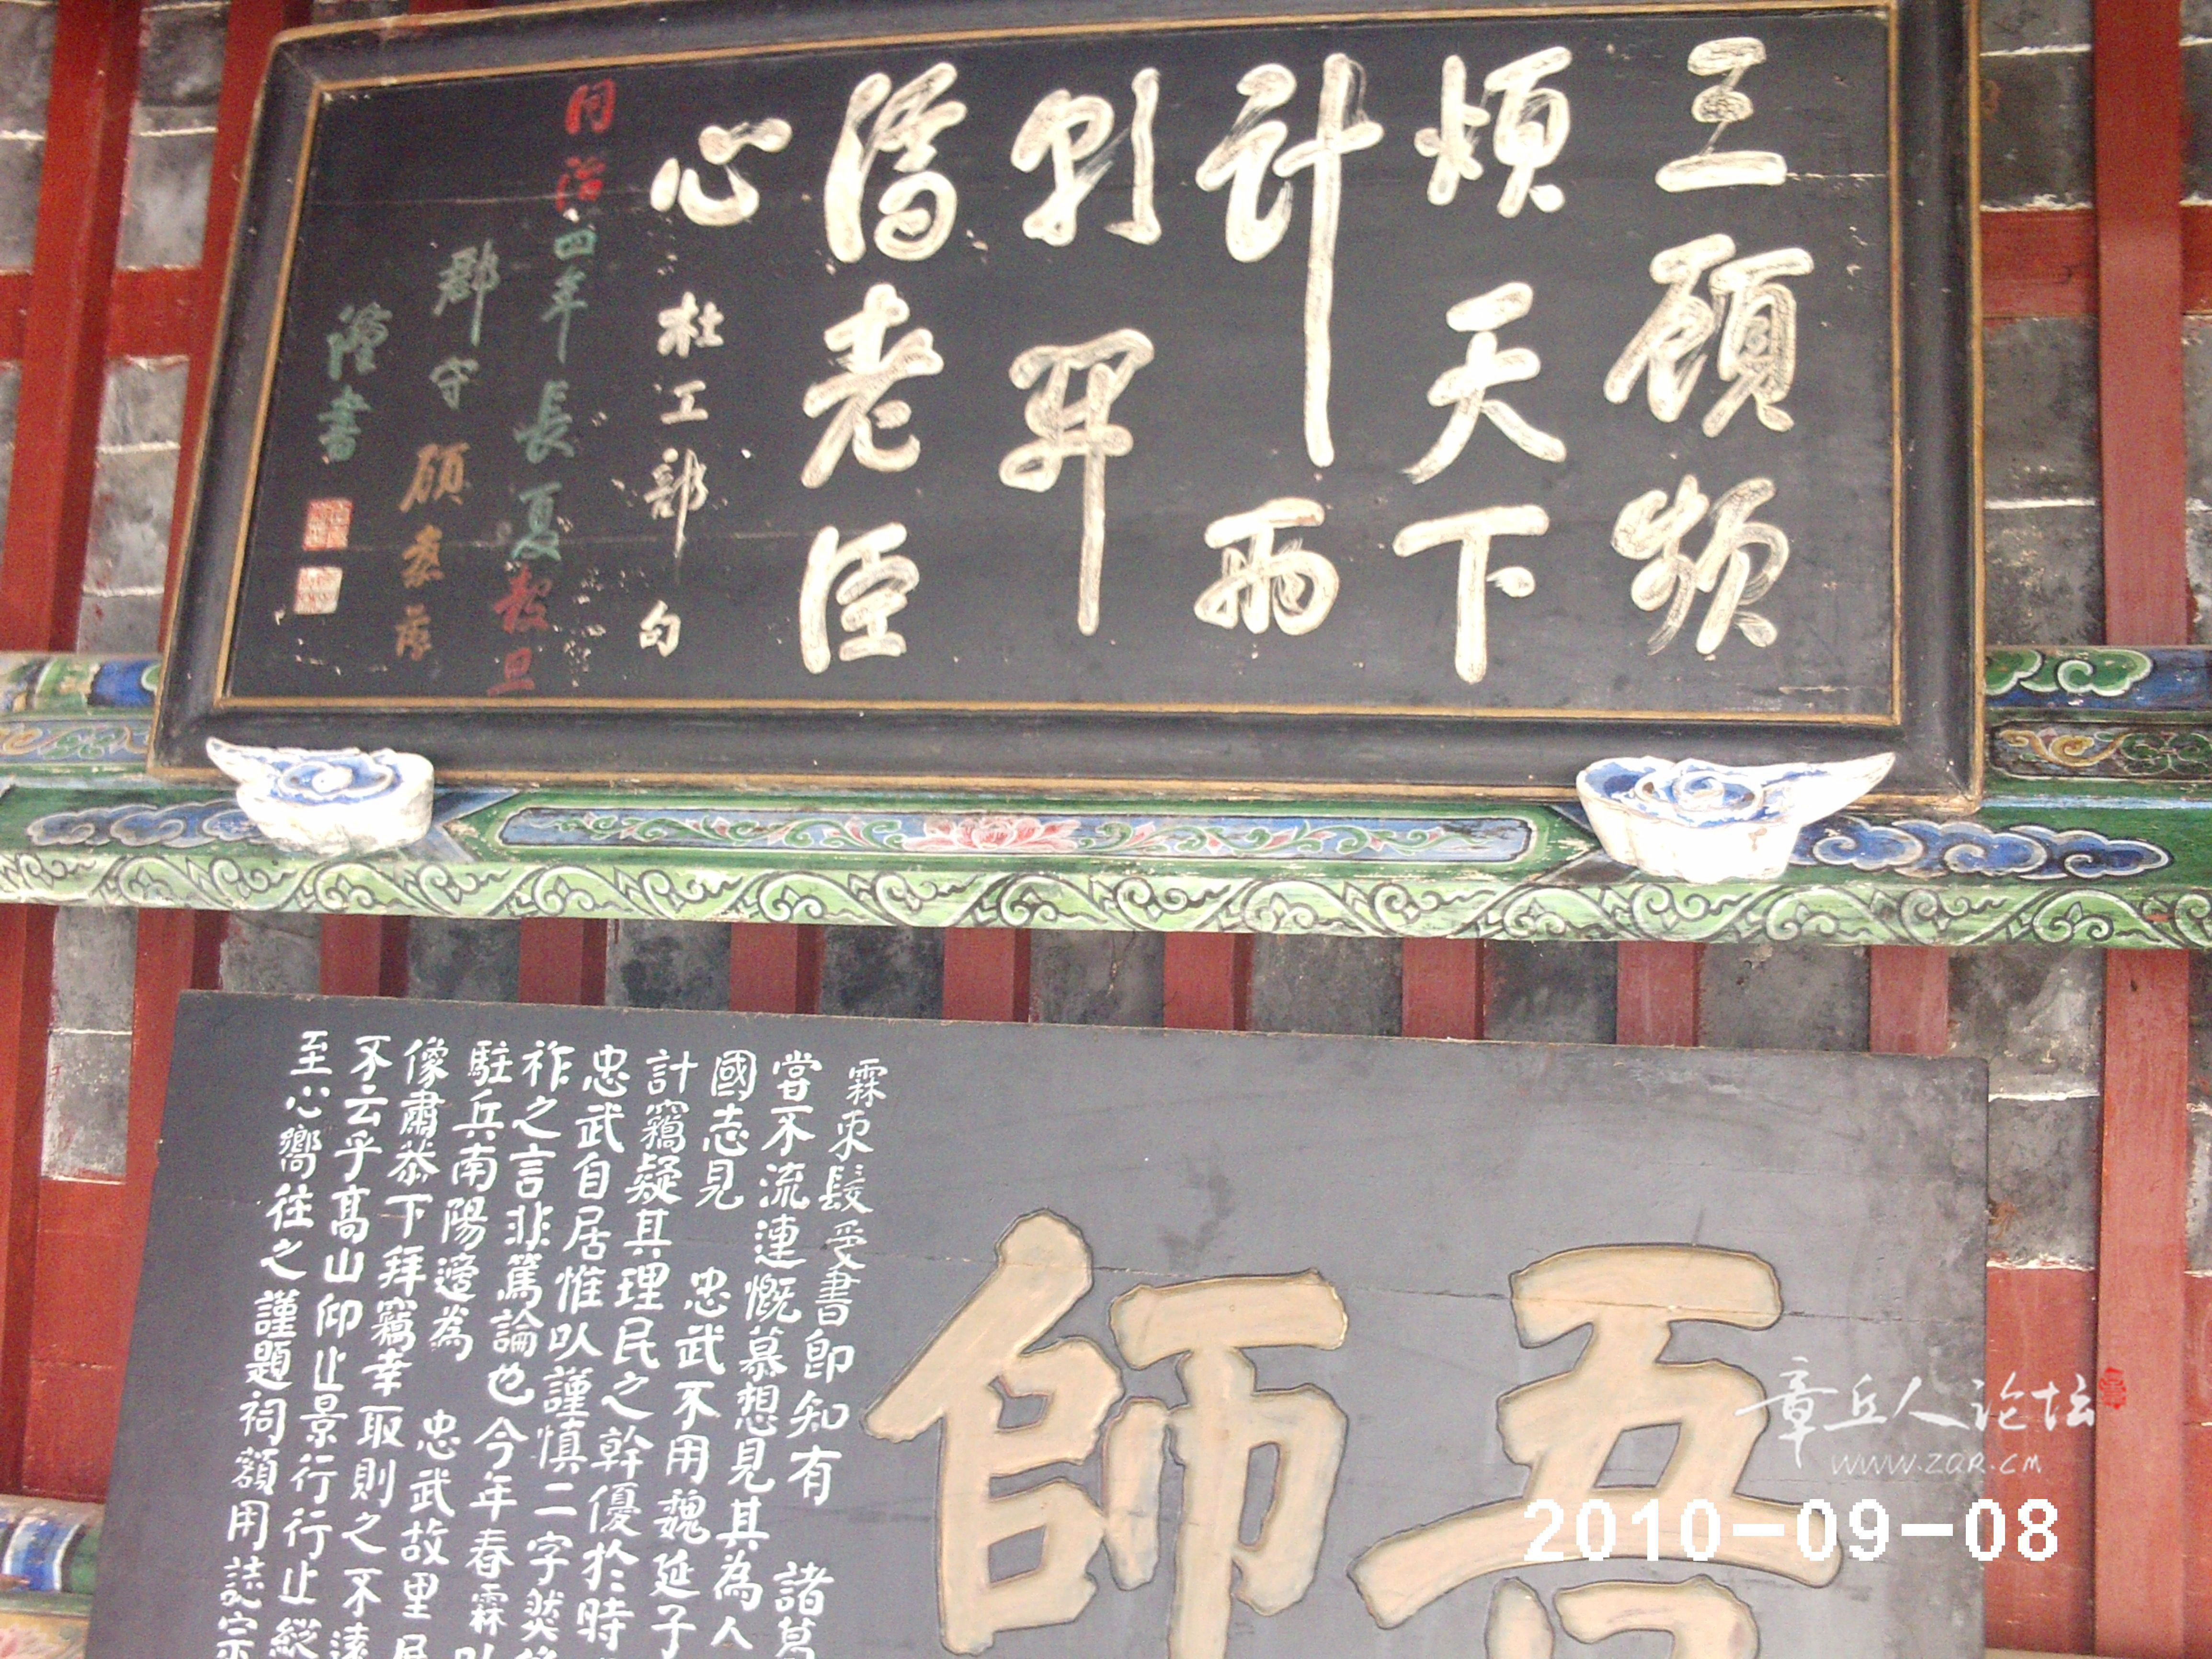 三顧頻
煩天下
計兩
朝開
濟老臣
心
杜工部句
同治四年長夏穀旦
郡守顧嘉蘅
書
吾師
霖束髮受書即知有諸葛
嘗不流連慨慕想見其為人
國志見忠武不用魏延子
計竊疑其理民之幹優於時
忠武自居惟以謹慎二字然
祚之言非篤論也今年春霖
駐兵南陽適為忠武故里
像肅恭下拜竊幸取則之不遠
不云乎高山仰止景行行止縱
至心嚮往之謹題祠額用誌
章丘人论坛
www.zqr.cm
2010-09-08